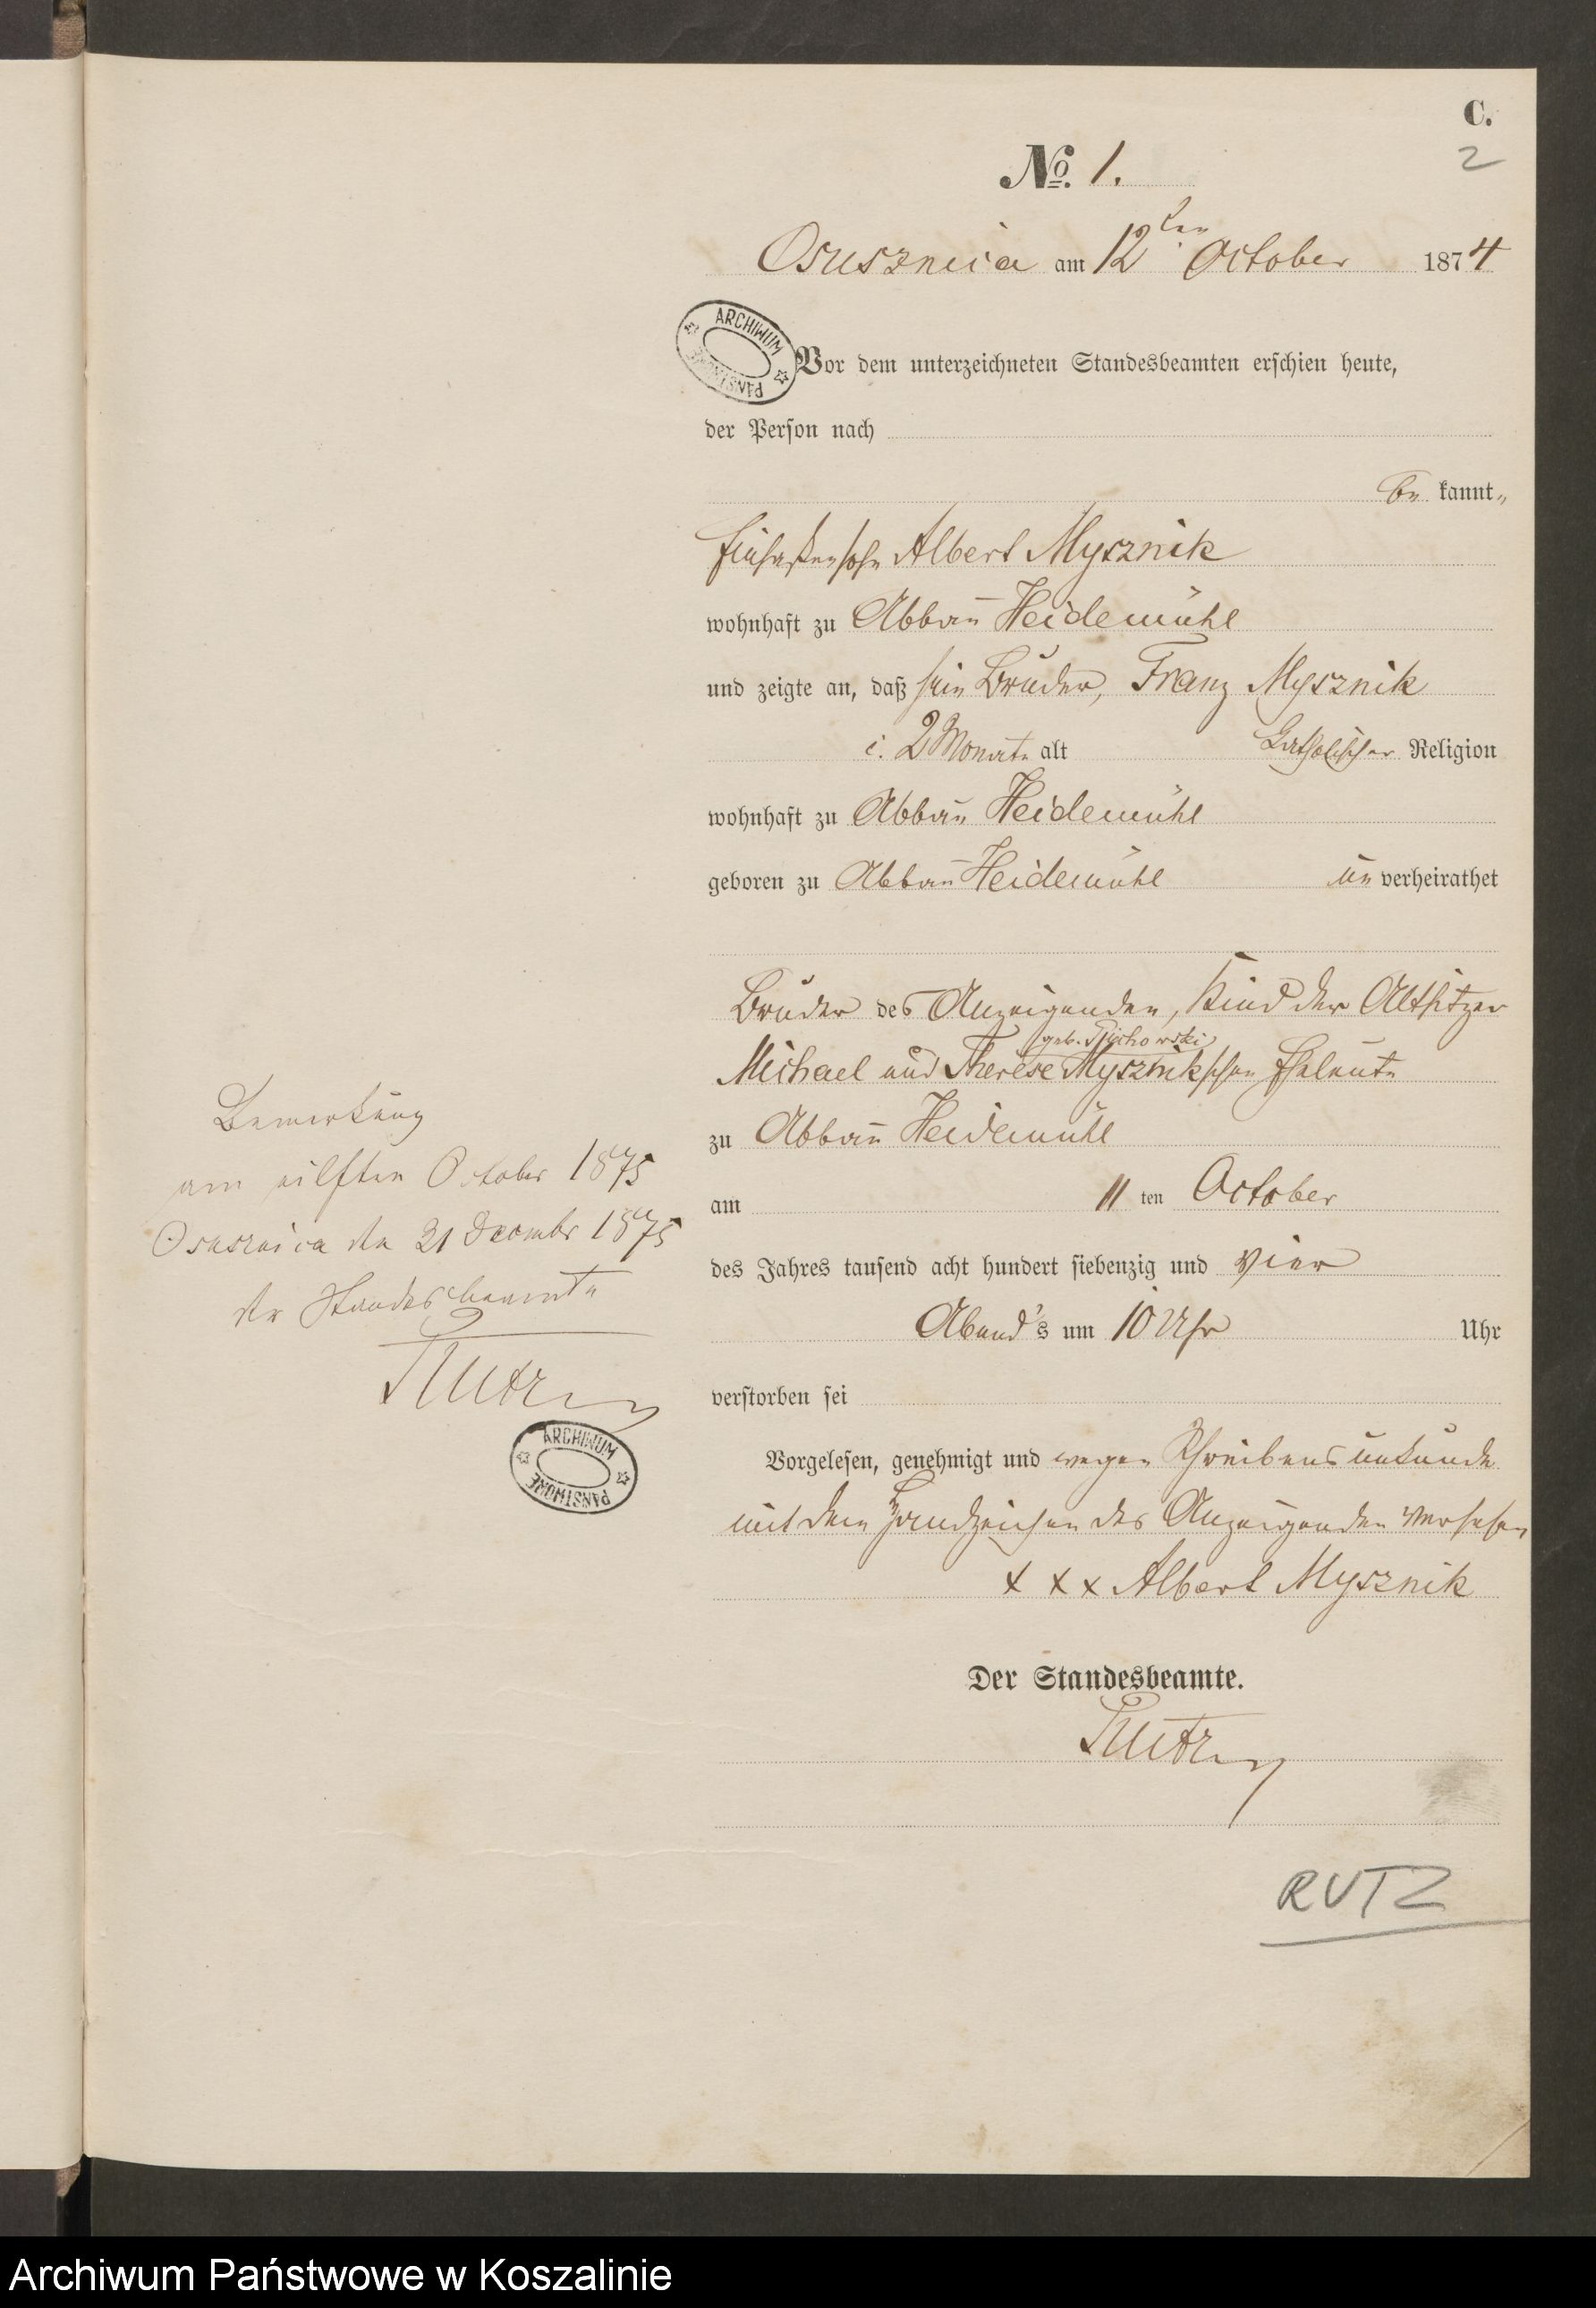 C.
2
No. 1.
Osusznica am 12ten October 1874
ARCHIWUM PAŃSTWOWE
Vor dem unterzeichneten Standesbeamten erschien heute,
der Person nach
be kannt,,
Einsassensohn Albert Mysznik
wohnhaft zu Abbau Heidemühl
und zeigte an, daß sein Bruder, Franz Mysznik
2 Monate alt Katholischer Religion
wohnhaft zu Abbau Heidemühl
geboren zu Abbau Heidemühl un verheirathet
Bruder des Anzeigenden, Kind der Altsitzer
geb.
Michael und Therese Mysznikschen Eheleute
zu Abbau Heidemühl
am 11 ten October
des Jahres tausend acht hundert siebenzig und vier
Abend's um 10 Uhr Uhr
verstorben sei
Vorgelesen, genehmigt und wegen Schreibensunkunde
mit dem Handzeichen des Anzeigenden versehen
x x x Albert Mysznik
Der Standesbeamte.
Rutz
RUTZ
Bemerkung
am eilften October 1875
Osusznica den 21 Decembr 1875
der Standesbeamte
Rutz
ARCHIWUM PAŃSTWOWE
Archiwum Państwowe w Koszalinie